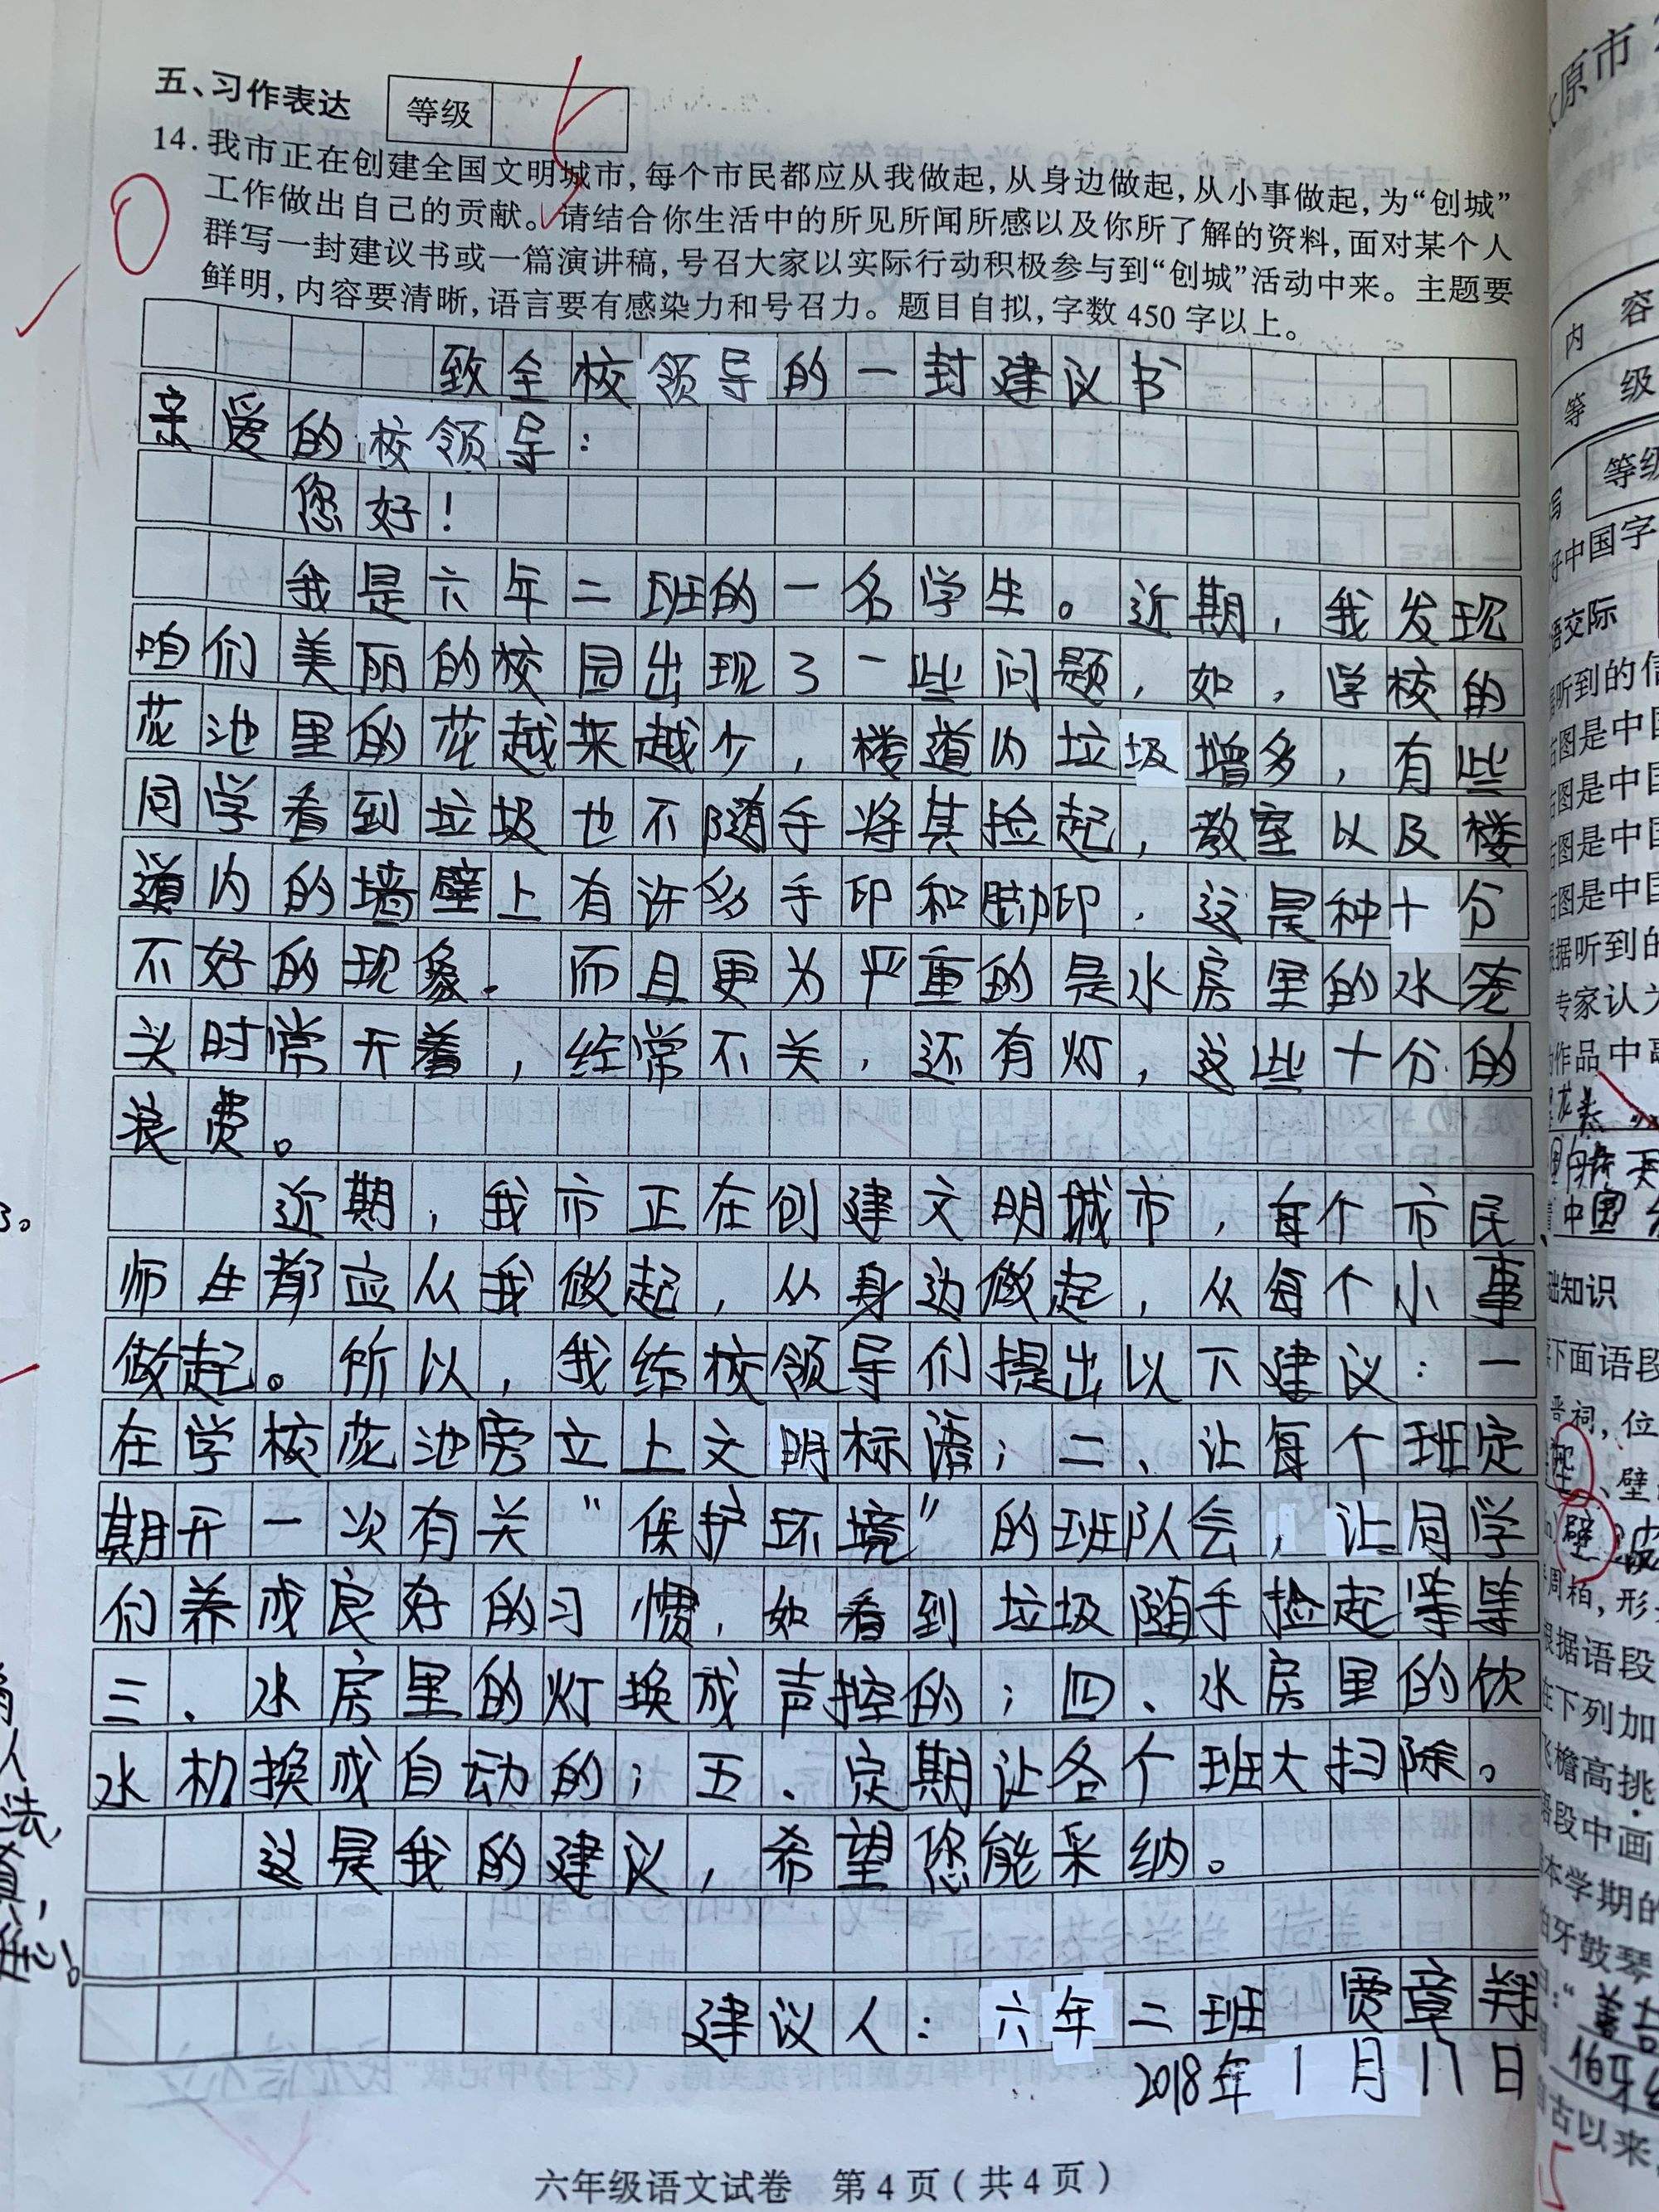 五、习作表达 等级
14.我市正在创建全国文明城市,每个市民都应从我做起,从身边做起,从小事做起,为“创城”
工作做出自己的贡献。请结合你生活中的所见所闻所感以及你所了解的资料,面对某个人
群写一封建议书或一篇演讲稿,号召大家以实际行动积极参与到“创城”活动中来。主题要
鲜明,内容要清晰,语言要有感染力和号召力。题目自拟,字数450字以上。
致全校领导的一封建议书
亲爱的校领导:
您好!
我是六年二班的一名学生。近期,我发现
咱们美丽的校园出现了一些问题,如,学校的
花池里的花越来越少,楼道内垃圾增多,有些
同学看到垃圾也不随手将其捡起,教室以及楼
道内的墙壁上有许多手印和脚印,这是种十分
不好的现象.而且更为严重的是水房里的水笼
头时常开着,经常不关,还有灯,这些十分的
浪费。
近期,我市正在创建文明城市,每个市民、
师生都应从我做起,从身边做起,从每个小事
做起。所以,我给校领导们提出以下建议:一
在学校花池旁立上文明标语;二、让每个班定
期开一次有关“保护环境”的班队会,让同学
们养成良好的习惯,如看到垃圾随手捡起等等
三、水房里的灯换成声控的;四、水房里的饮
水机换成自动的;五、定期让各个班大扫除。
这是我的建议,希望您能采纳。
建议人:六年二班 贾章翔
2018年1月17日
六年级语文试卷 第4页(共4页)
太原市
内容
等级
等级
好中国字
语交际
听到的信
右图是中国
右图是中国
右图是中国
右图是中国
根据听到的
专家认为
作品中
中国
础知识
下面语段
晋祠,位
壁
周柏,形
根据语段
在下列加
飞檐高挑
语段中画
本学期的
伯牙鼓琴
曰:“善
伯牙
自古以来